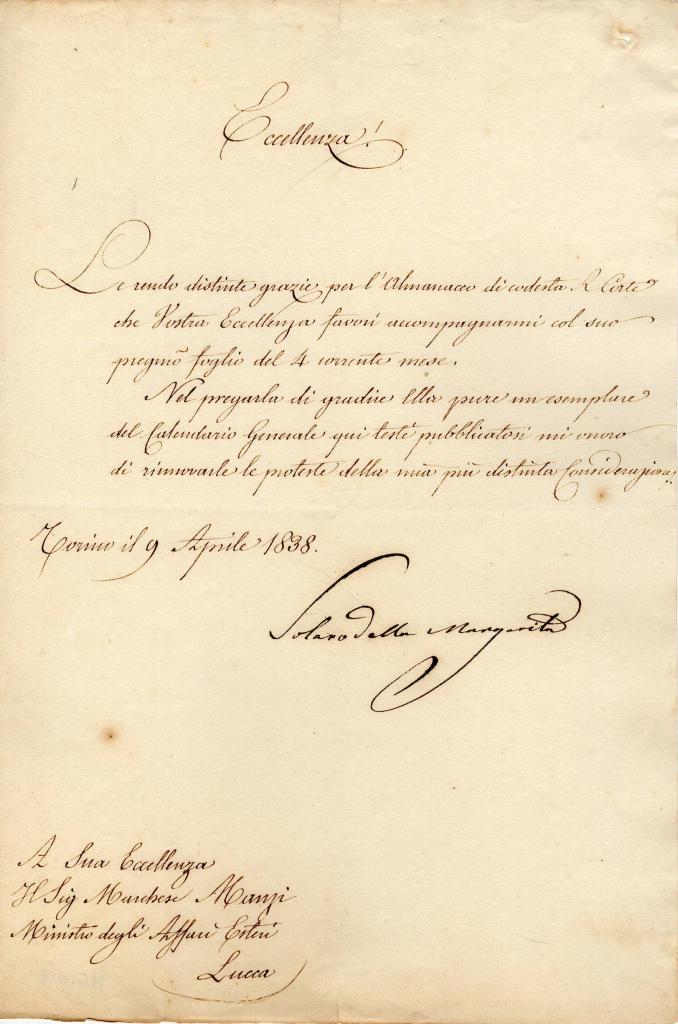 Eccellenza!
Le rendo distinte grazie per l'Almanacco di codesta R Corte
che Vostra Eccellenza favorì accompagnarmi col suo
pregmo̅ foglio del 4 corrente mese.
Nel pregarla di gradire Ella pure un esemplare
del Calendario Generale qui testè pubblicatosi mi onoro
di rinnovarle le proteste della mia più distinta Considerazione.
Torino il 9 Aprile 1838.
Solaro della Margarita
A Sua Eccellenza
Il Sig Marchese Manzi
Ministro degli Affari Esteri
Lucca